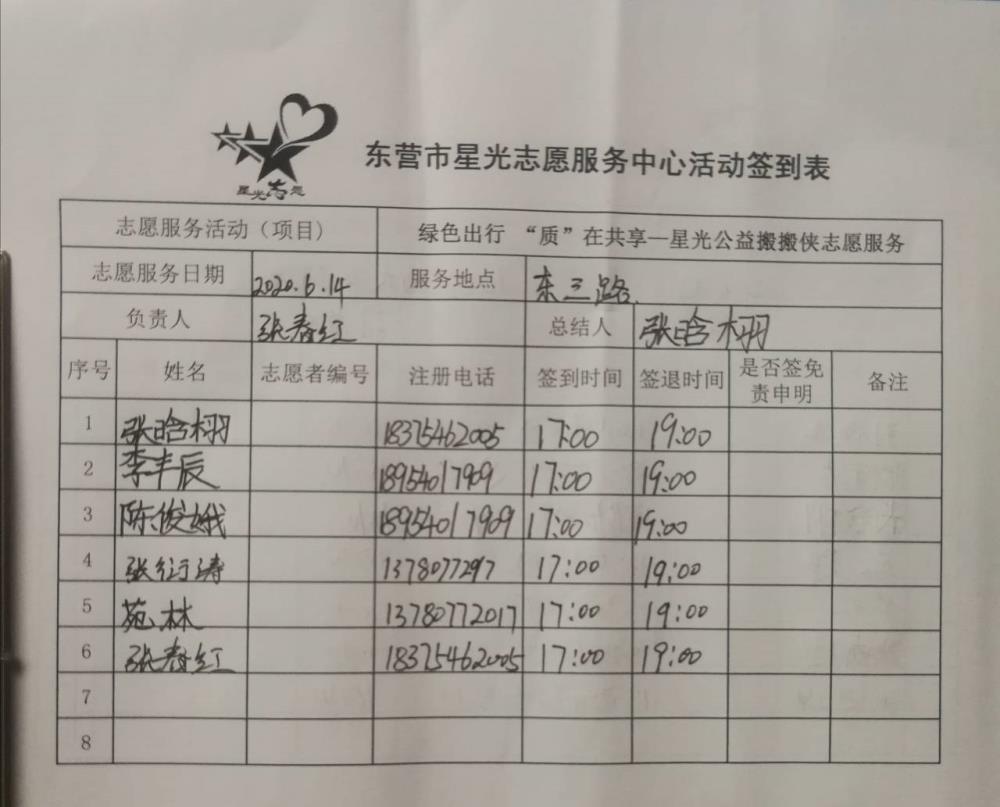 星光志愿
东营市星光志愿服务中心活动签到表
志愿服务活动（项目） 绿色出行 “质”在共享—星光公益搬搬侠志愿服务
志愿服务日期 2020.6.14 服务地点 东三路
负责人 张春红 总结人 张晗栩
序号 姓名 志愿者编号 注册电话 签到时间 签退时间 是否签免责申明 备注
1 张晗栩 18375462005 17:00 19:00
2 李丰辰 18954017909 17:00 19:00
3 陈俊娥 18954017909 17:00 19:00
4 张衍涛 17:00 19:00
5 苑林 13780772017 17:00 19:00
6 张春红 18375462005 17:00 19:00
7
8